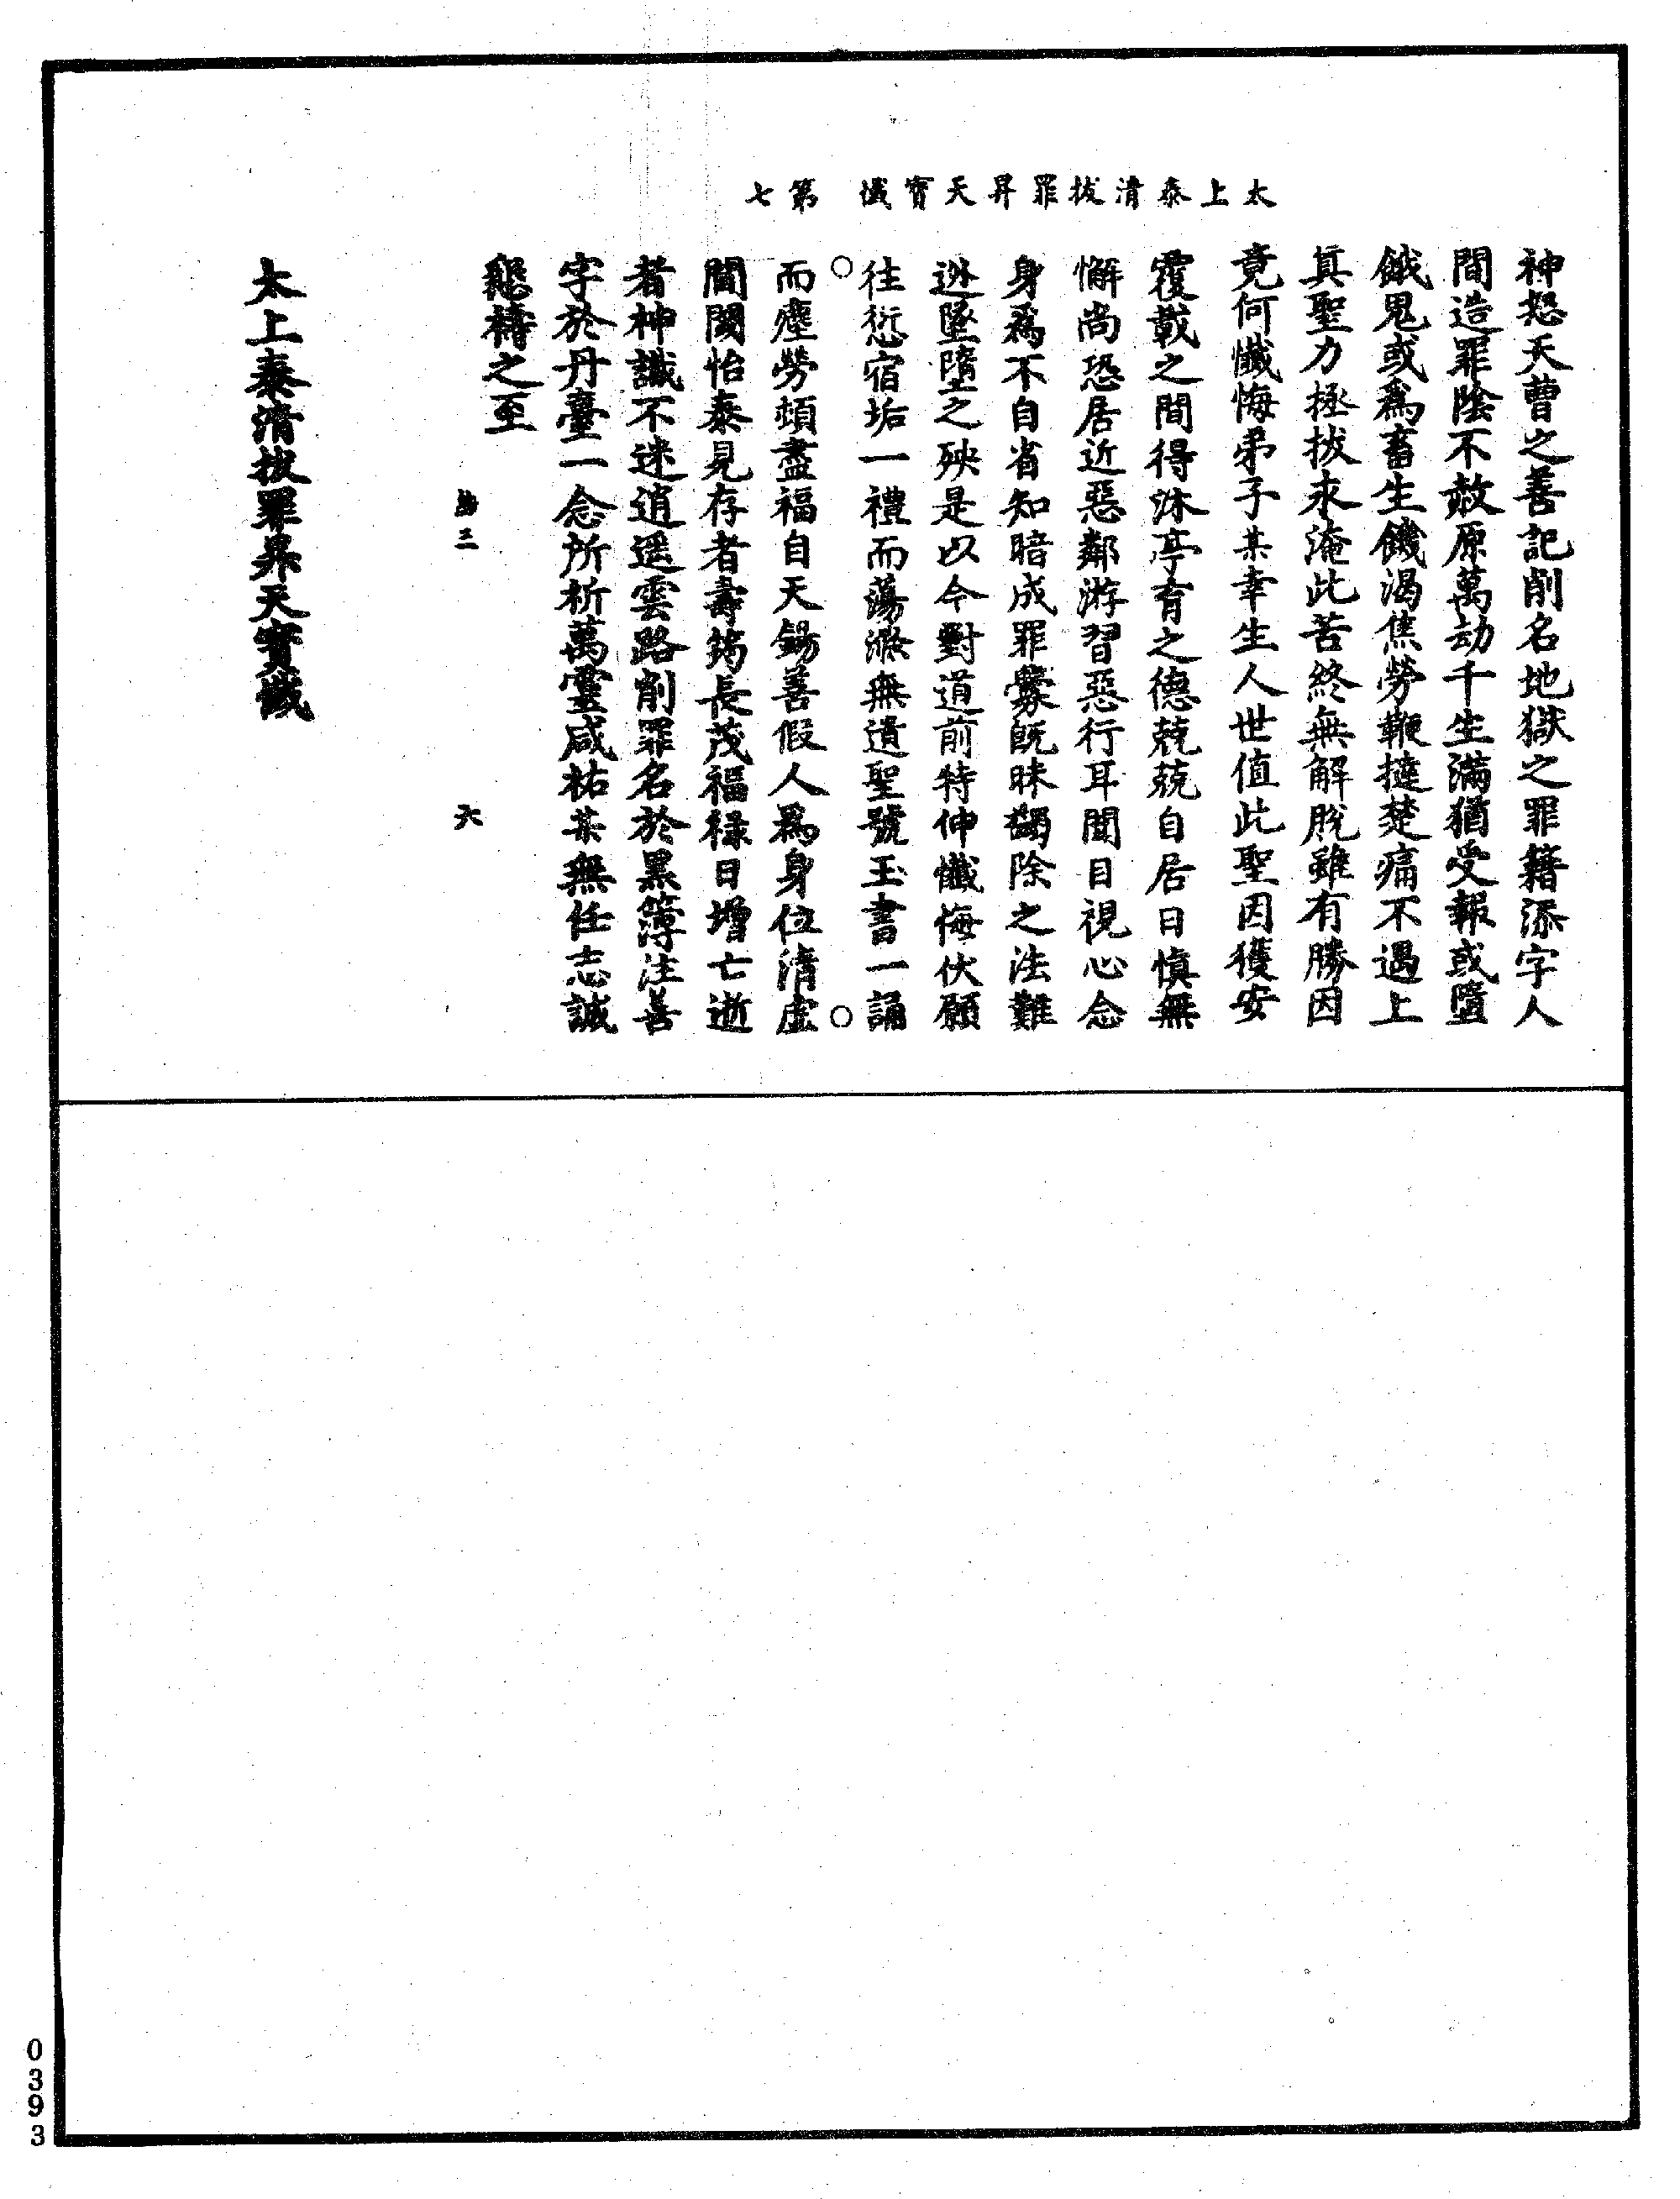 太上泰清拔罪昇天寶懺 第七
神怒天曹之善記削名地獄之罪籍添字人
間造罪陰不赦原萬劫千生滿猶受報或墮
餓鬼或爲畜生饑渴焦勞鞭撻楚痛不遇上
真聖力拯拔永淹此苦終無解脫雖有勝因
竟何懺悔弟子某幸生人世值此聖因獲安
覆載之間得沐亭育之德兢兢自居日慎無
懈尚恐居近惡鄰游習惡行耳聞目視心念
身爲不自省知暗成罪釁既昧蠲除之法難
逃墜墮之殃是以今對道前特伸懺悔伏願
往愆宿垢一禮而蕩滌無遺聖號玉書一誦
而塵勞頓盡福自天錫善假人爲身位清虛
閶闔怡泰見存者壽筭長茂福祿日增亡逝
者神識不迷逍遥雲路削罪名於黑簿注善
字於丹臺一念所祈萬靈咸祐某無任志誠
懇禱之至
三 六
太上泰清拔罪昇天寶懺
0393